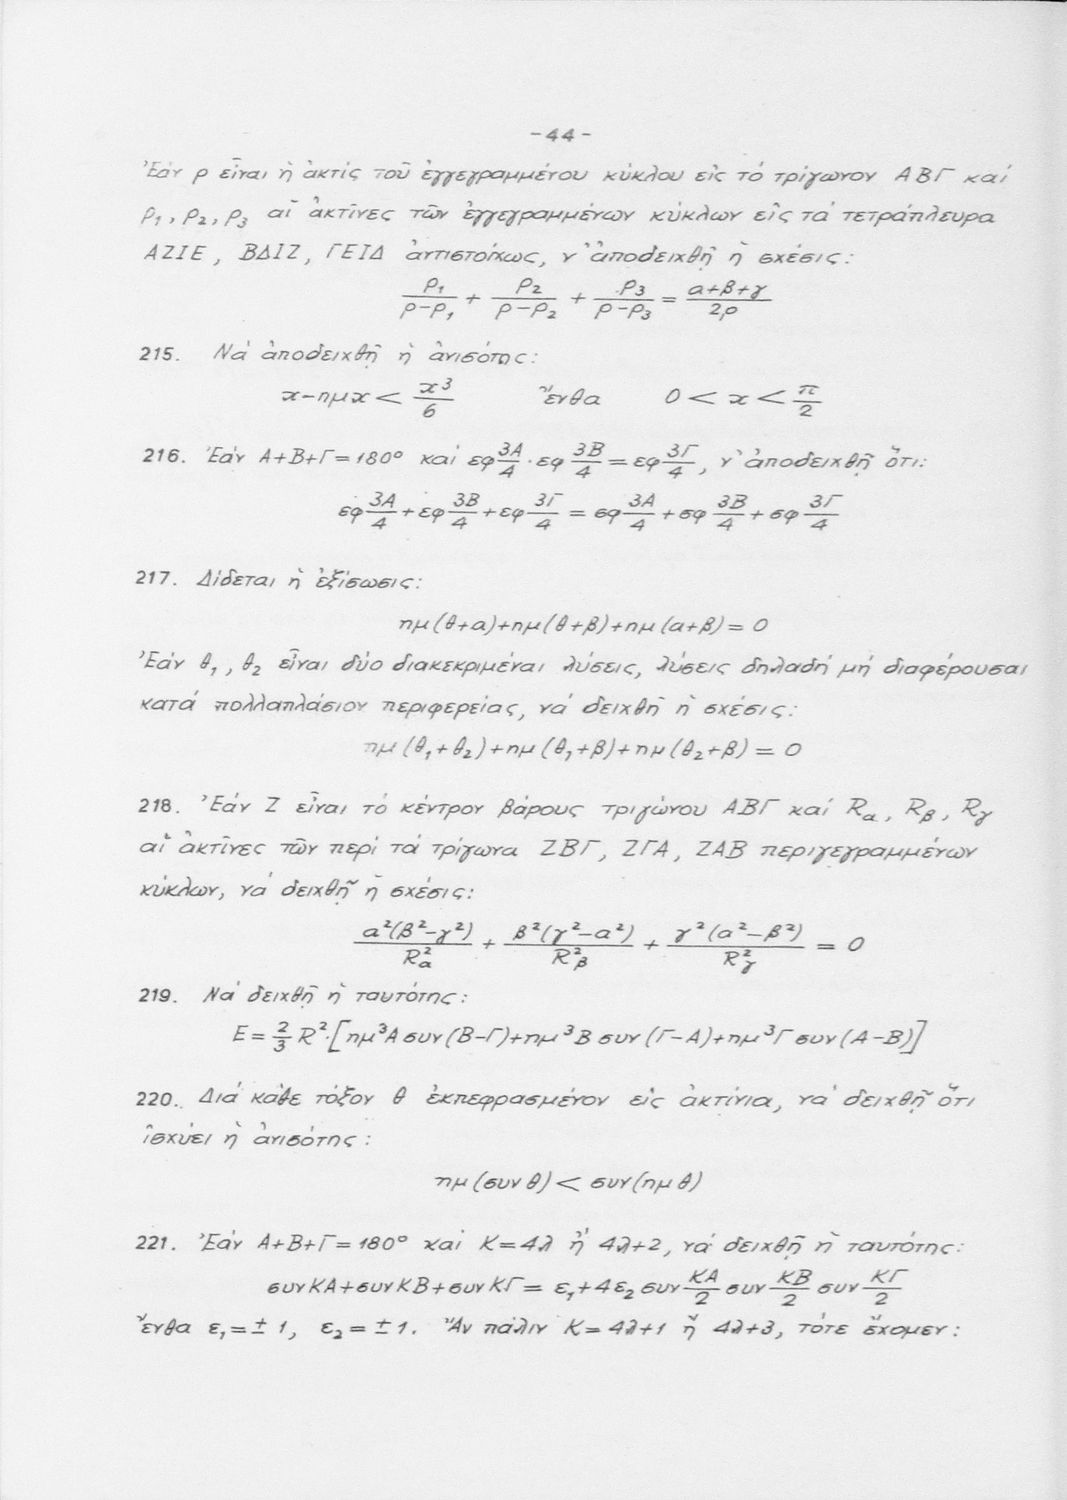 -44-
Ἐάν ρ εἶναι ἡ ἀκτίς τοῦ ἐγγεγραμμένου κύκλου εἰς τό τρίγωνον ΑΒΓ καί
ρ₁, ρ₂, ρ₃ αἱ ἀκτῖνες τῶν ἐγγεγραμμένων κύκλων εἰς τά τετράπλευρα
ΑΖΙΕ, ΒΔΙΖ, ΓΕΙΔ ἀντιστοίχως, ν' ἀποδειχθῇ ἡ σχέσις:
ρ₁/(ρ-ρ₁) + ρ₂/(ρ-ρ₂) + ρ₃/(ρ-ρ₃) = (α+β+γ)/2ρ
215. Νά ἀποδειχθῇ ἡ ἀνισότης:
x-ημx < x³/6 ἔνθα 0 < x < π/2
216. Ἐάν Α+Β+Γ=180° καί εφ 3Α/4 · εφ 3Β/4 = εφ 3Γ/4, ν' ἀποδειχθῇ ὅτι:
εφ 3Α/4 + εφ 3Β/4 + εφ 3Γ/4 = σφ 3Α/4 + σφ 3Β/4 + σφ 3Γ/4
217. Δίδεται ἡ ἐξίσωσις:
ημ(θ+α)+ημ(θ+β)+ημ(α+β)=0
Ἐάν θ₁, θ₂ εἶναι δύο διακεκριμέναι λύσεις, λύσεις δηλαδή μή διαφέρουσαι
κατά πολλαπλάσιον περιφερείας, νά δειχθῇ ἡ σχέσις:
ημ(θ₁+θ₂)+ημ(θ₁+β)+ημ(θ₂+β)=0
218. Ἐάν Ζ εἶναι τό κέντρον βάρους τριγώνου ΑΒΓ καί Rα, Rβ, Rγ
αἱ ἀκτῖνες τῶν περί τά τρίγωνα ΖΒΓ, ΖΓΑ, ΖΑΒ περιγεγραμμένων
κύκλων, νά δειχθῇ ἡ σχέσις:
α²(β²-γ²)/R²α + β²(γ²-α²)/R²β + γ²(α²-β²)/R²γ = 0
219. Νά δειχθῇ ἡ ταυτότης:
Ε = 2/3 R²·[ημ³Α συν(Β-Γ)+ημ³Β συν(Γ-Α)+ημ³Γ συν(Α-Β)]
220. Διά κάθε τόξον θ ἐκπεφρασμένον εἰς ἀκτίνια, νά δειχθῇ ὅτι
ἰσχύει ἡ ἀνισότης:
ημ(συνθ) < συν(ημθ)
221. Ἐάν Α+Β+Γ=180° καί Κ=4λ ἤ 4λ+2, νά δειχθῇ ἡ ταυτότης:
συνΚΑ+συνΚΒ+συνΚΓ = ε₁+4ε₂ συν ΚΑ/2 συν ΚΒ/2 συν ΚΓ/2
ἔνθα ε₁=±1, ε₂=±1. Ἄν πάλιν Κ=4λ+1 ἤ 4λ+3, τότε ἔχομεν: